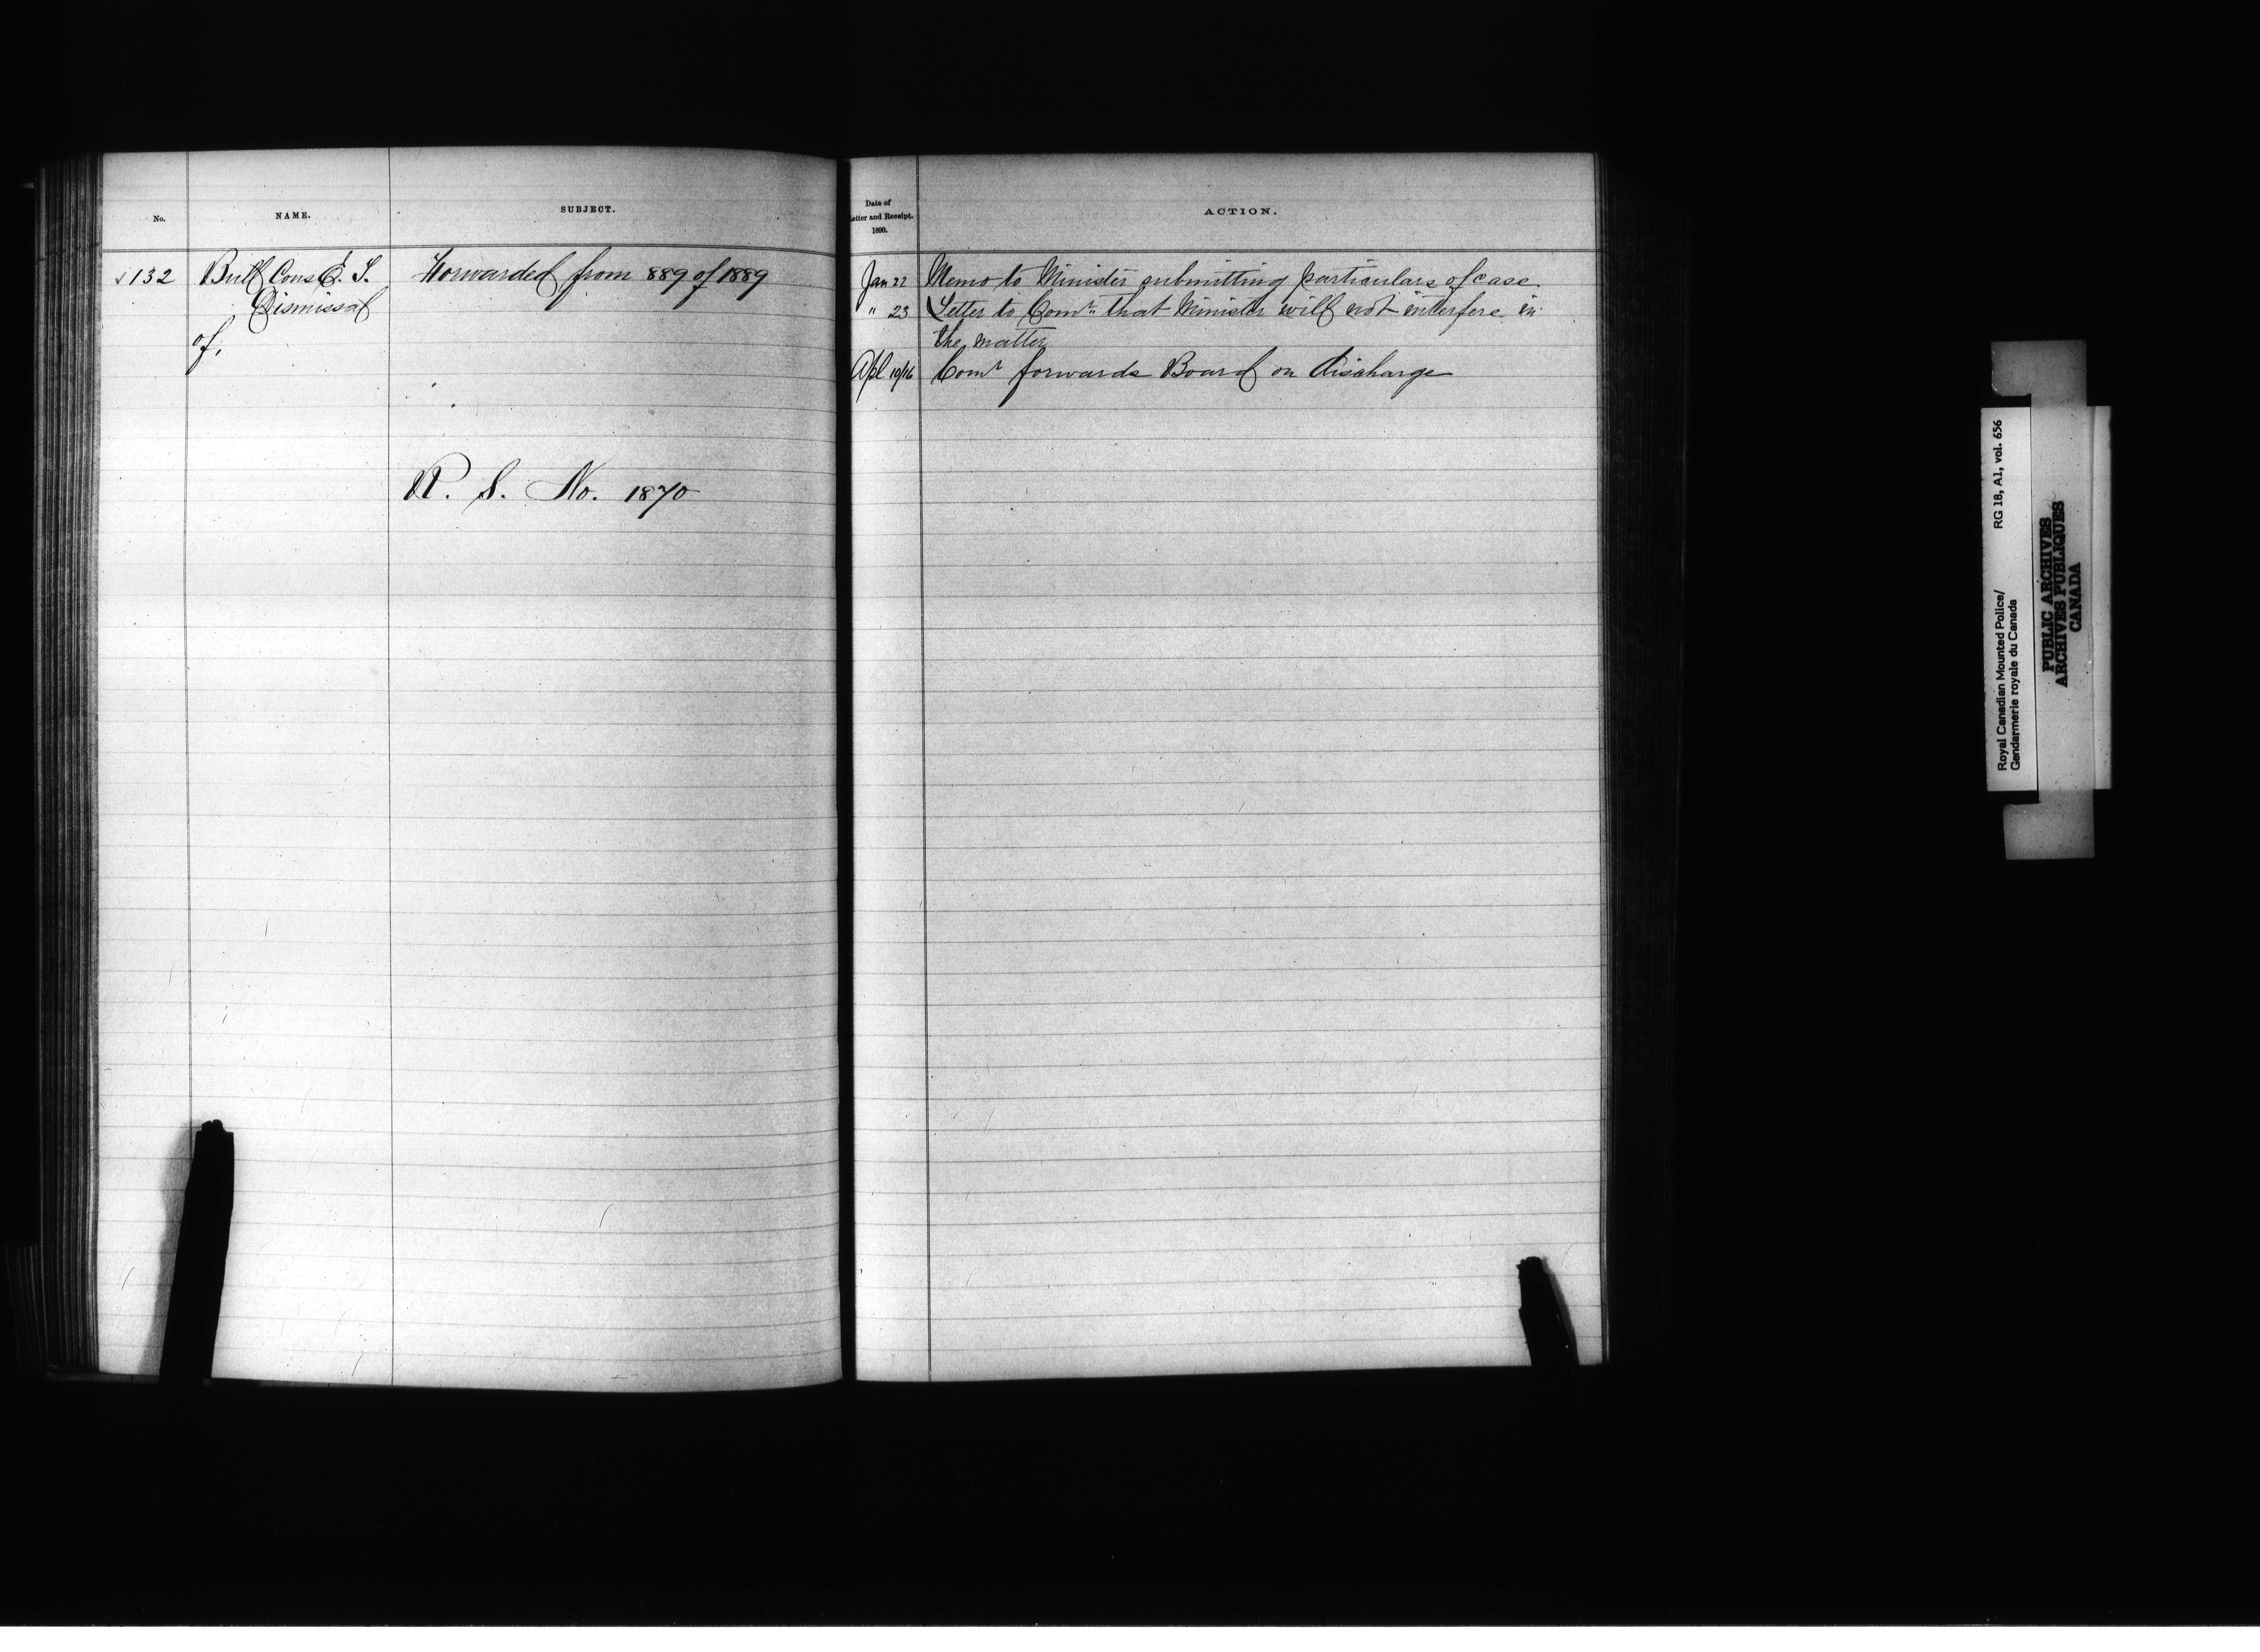 No.
NAME.
SUBJECT.
✓ 132
Bull Cons E. S.
Forwarded from 889 of 1889
Dismissal
of,
R. S. No. 1870
Date of
Letter and Receipt.
1890.
ACTION.
Jan 22 Memo to Minister submitting particulars of case.
" 23 Letter to Comr. that Minister will not interfere in
the matter
Apl 10/16 Comr forwards Board on discharge
Royal Canadian Mounted Police/ RG 18, A1, vol. 656
Gendarmerie royale du Canada
PUBLIC ARCHIVES
ARCHIVES PUBLIQUES
CANADA